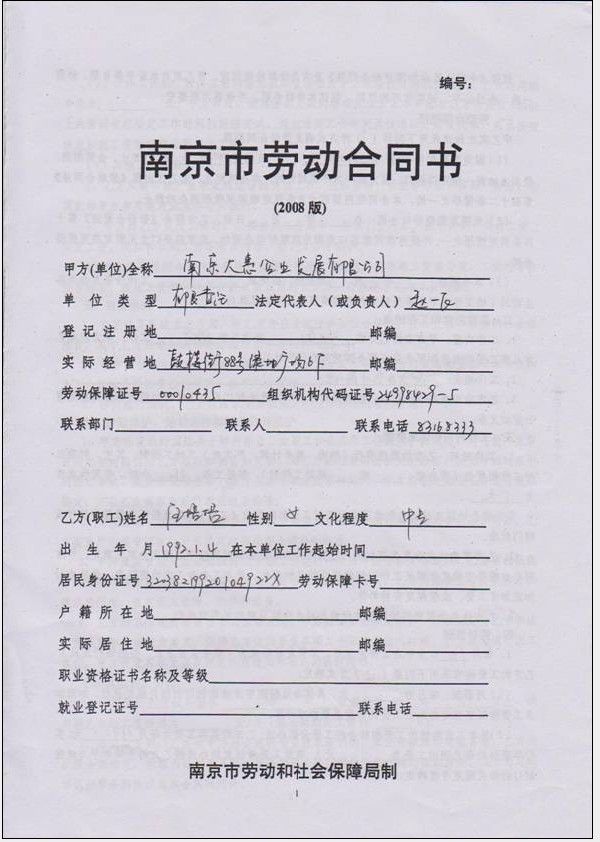 编号：
南京市劳动合同书
(2008 版)
甲方(单位)全称 南京大惠企业发展有限公司
单位类型 有限责任 法定代表人（或负责人）赵一
登记注册地 邮编
实际经营地 鼓楼街88号 广场6F 邮编
劳动保障证号 00010435 组织机构代码证号 24998429-5
联系部门 联系人 联系电话 83168333
乙方(职工)姓名 汪培培 性别 女 文化程度 中专
出生年月 1992.1.4 在本单位工作起始时间
居民身份证号 32038219920104922X 劳动保障卡号
户籍所在地 邮编
实际居住地 邮编
职业资格证书名称及等级
就业登记证号 联系电话
南京市劳动和社会保障局制
1